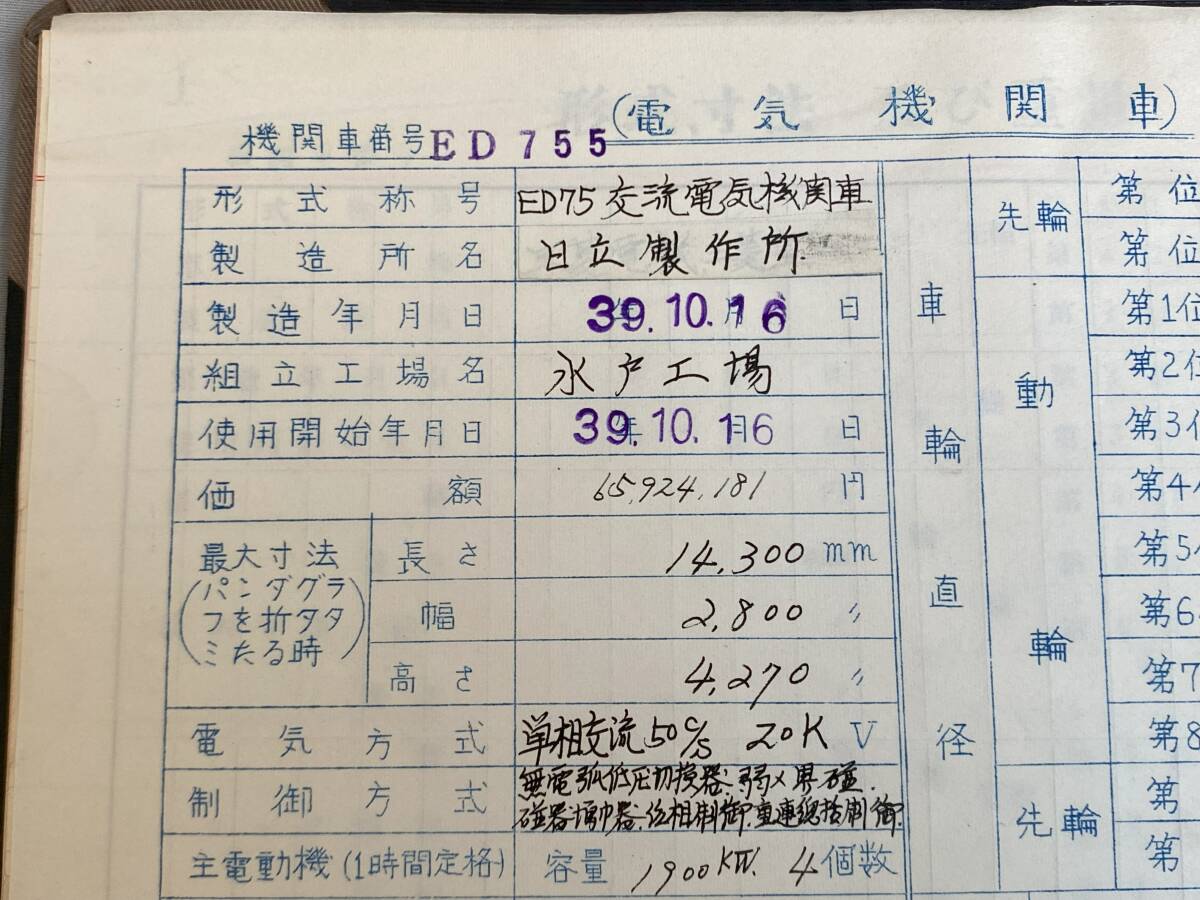 (電気機関車)
機関車番号 ED 755
形式称号 ED75交流電気機関車
製造所名 日立製作所
製造年月日 39.10.16 年月日
組立工場名 水戸工場
使用開始年月日 39.10.16 年月日
価額 65,924,181 円
最大寸法
(パンダグラ
フを折タタ
ミたる時)
長さ 14,300 mm
幅 2,800 〃
高さ 4,270 〃
電気方式 単相交流50c/s 20K V
制御方式 無電弧低圧切換器.弱メ界磁.
磁器増巾器.位相制御.重連総括制御.
主電動機(1時間定格) 容量 1900KW. 4個数
車輪直径
先輪
第 位
第 位
動輪
第1位
第2位
第3位
第4位
第5位
第6
第7
第8
先輪
第
第